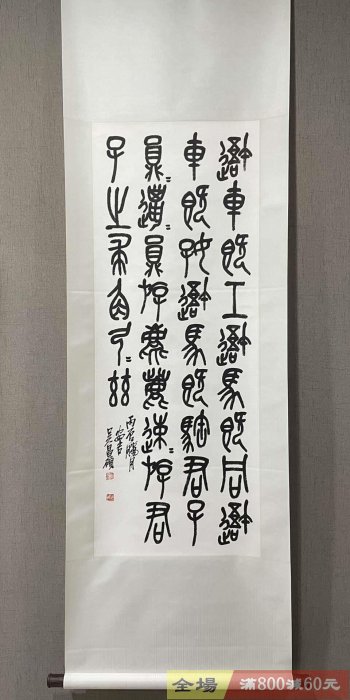 吾車既工吾馬既同吾
車既好吾馬既騊君子
員〻邋〻員斿麀鹿速〻斿君
子之求角弓〻茲
丙辰臘月
安吉
吳昌碩
全場 滿800減60元